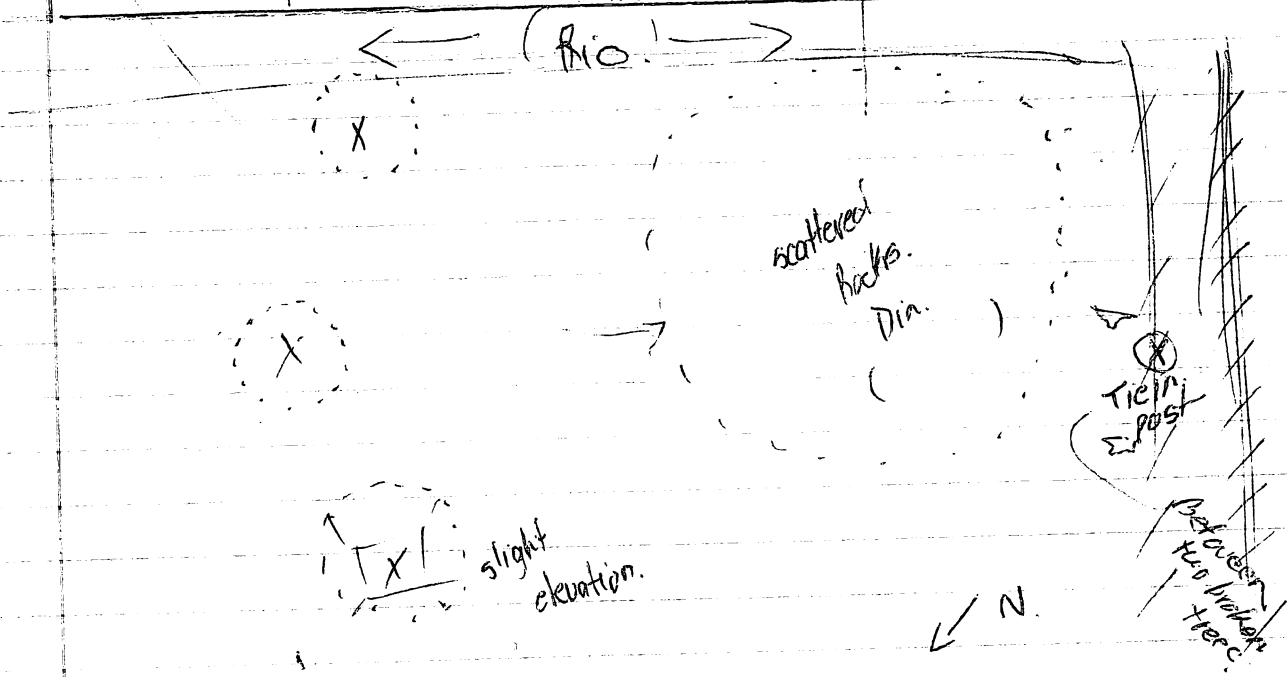 (Rio!
X
scattered
Rocks.
Dia.
X
X
Tie in
post
X
slight
elevation.
Between
two broken
trees.
N.